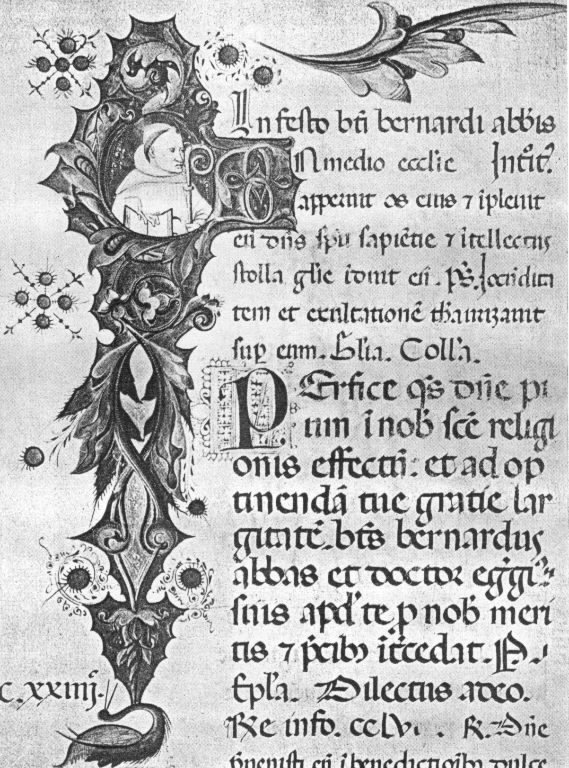 In festo bti bernardi abbis
IN medio ecclie Introit?
apperuit os eius ⁊ iplevit
eu dns spu sapietie ⁊ itellectus
stolla glie iduit eu. ps. Jocundita
tem et exultatione thaurizavit
sup eum. Glia. Colla.
PErfice qs dne pi
um i nob sce religi
onis effectu: et ad op
tinenda tue gratie lar
gitate. bts bernardus
abbas et doctor eggi
suis apd te p nob meri
tis ⁊ pcib itcedat. P.
Epla. Dilectus adeo.
C.xxiiij.
Re info. cclv R. Dne
pvenisti eu i benedictioib dulce